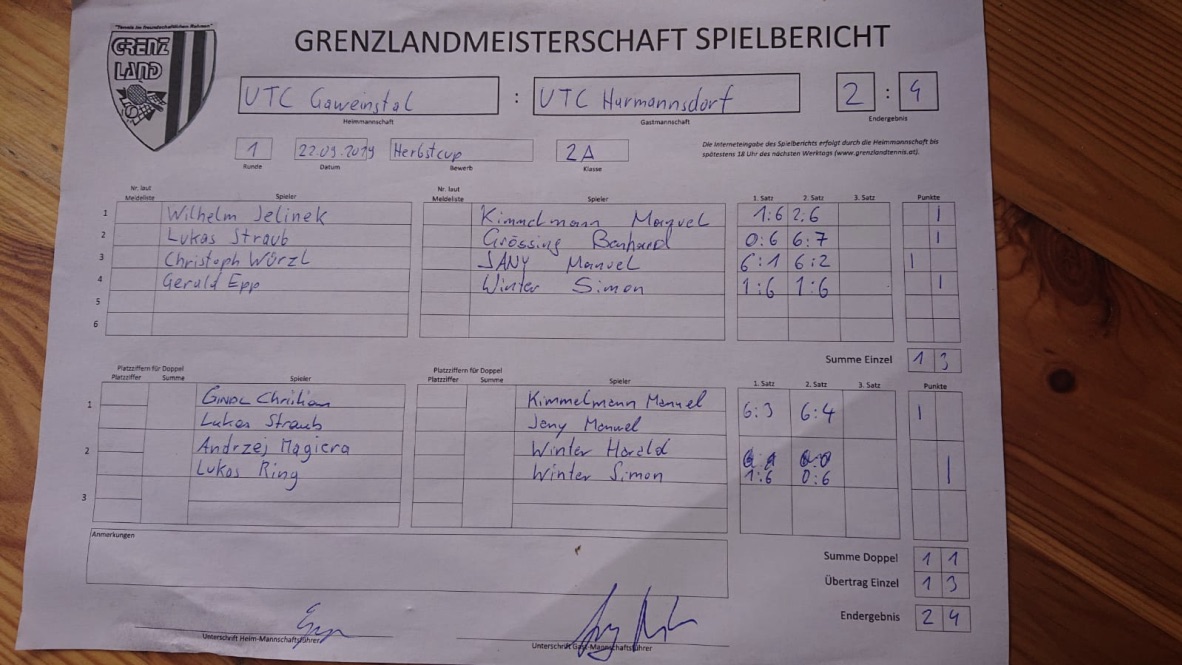 "Verein im freundschaftlichen Rahmen"
GRENZ
LAND
GRENZLANDMEISTERSCHAFT SPIELBERICHT
UTC Gaweinstal : UTC Hurmannsdorf 2 : 4
Heimmannschaft Gastmannschaft Endergebnis
1 22.09.2019 Herbstcup 2A
Runde Datum Bewerb Klasse
Die Interneteingabe des Spielberichts erfolgt durch die Heimmannschaft bis
spätestens 18 Uhr des nächsten Werktags (www.grenzlandtennis.at).
Nr. laut Meldeliste Spieler Nr. laut Meldeliste Spieler 1. Satz 2. Satz 3. Satz Punkte
1 Wilhelm Jelinek Kimmelmann Manuel 1:6 2:6 1
2 Lukas Straub Grössing Bernhard 0:6 6:7 1
3 Christoph Würzl JANY Manuel 6:1 6:2 1
4 Gerald Epp Winter Simon 1:6 1:6 1
5
6
Summe Einzel 1 3
Platzziffern für Doppel Platzziffern für Doppel
Platzziffer Summe Spieler Platzziffer Summe Spieler 1. Satz 2. Satz 3. Satz Punkte
1 GINDL Christian Kimmelmann Manuel 6:3 6:4 1
Lukas Straub Jany Manuel
2 Andrzej Magiera Winter Harald
Lukas Ring Winter Simon 1:6 0:6 1
3
Anmerkungen
Summe Doppel 1 1
Übertrag Einzel 1 3
Endergebnis 2 4
Unterschrift Heim-Mannschaftsführer Unterschrift Gast-Mannschaftsführer